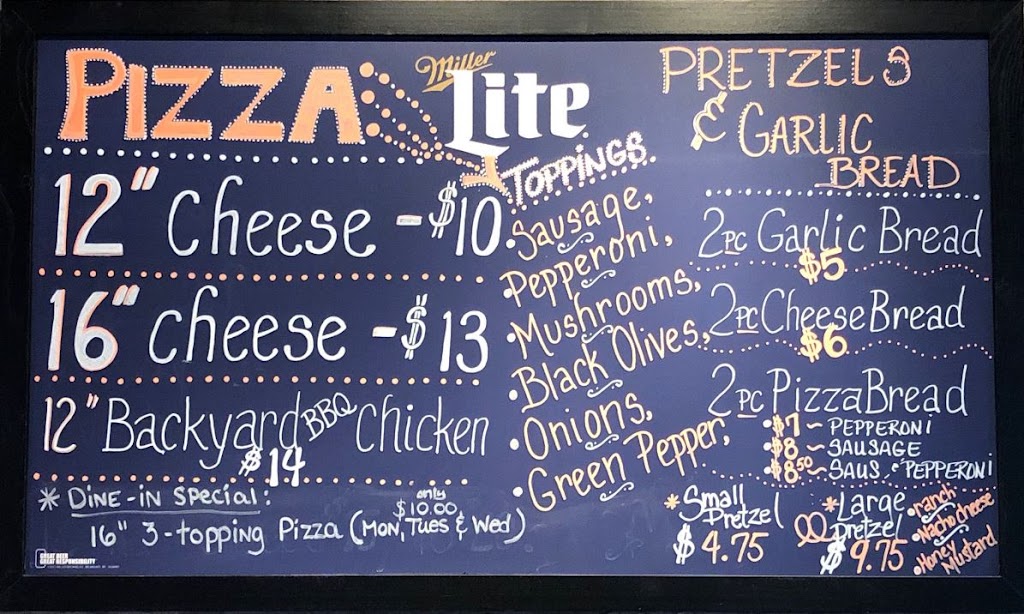 PIZZA
Miller
Lite
12" Cheese - $10
16" cheese - $13
12" Backyard BBQ Chicken
$14
* DINE-IN SPECIAL:
only
$10.00
16" 3-topping Pizza (MON, TUES & WED)
GREAT BEER
GREAT RESPONSIBILITY
TOPPINGS
• Sausage,
• Pepperoni,
• Mushrooms,
• Black Olives,
• Onions,
• Green Pepper,
PRETZELS
& GARLIC
BREAD
2 PC Garlic Bread
$5
2 PC Cheese Bread
$6
2 PC Pizza Bread
• $7 ~ PEPPERONI
• $8 ~ SAUSAGE
• $8.50 ~ SAUS. & PEPPERONI
* Small
Pretzel
$4.75
* Large
Pretzel
$9.75
• ranch
• Nacho cheese
• Honey Mustard